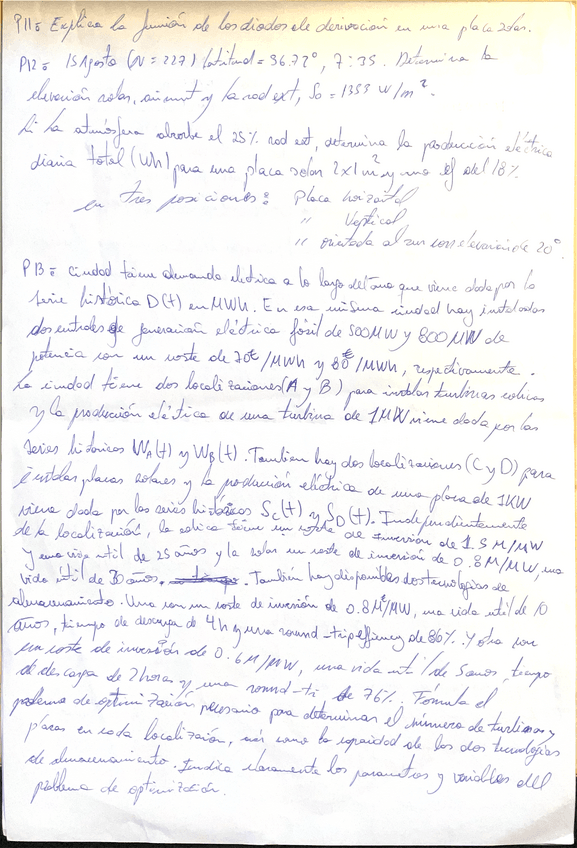 P11= Explica la función de los diodos de derivación en una placa solar.
P12= 15 Agosto (N = 227) latitud = 36.72°, 7:35. Determina la
elevación solar, azimut y la rad ext, S0 = 1353 W/m².
Si la atmósfera absorbe el 25% rad ext, determina la producción eléctrica
diaria total (Wh) para una placa solar 2x1 m² y uno ef del 18%
en tres posiciones: Placa horizontal
" Vertical
" orientada al sur con elevación de 20°
P13= ciudad tiene demanda eléctrica a lo largo del año que viene dada por la
serie histórica D(t) en MWh. En esa misma ciudad hay instaladas
dos centrales de generación eléctrica fósil de 500MW y 800MW de
potencia con un coste de 70€/MWh y 80€/MWh, respectivamente.
La ciudad tiene dos localizaciones (A y B) para instalar turbinas eólicas
y la producción eléctrica de una turbina de 1MW viene dada por las
series históricas WA(t) y WB(t). También hay dos localizaciones (C y D) para
instalar placas solares y la producción eléctrica de una placa de 1KW
viene dada por las series históricas SC(t) y SD(t). Independientemente
de la localización, la eólica tiene un coste de inversión de 1.5 M/MW
y una vida útil de 25 años y la solar un coste de inversión de 0.8 M/MW, una
vida útil de 30 años. También hay disponibles dos tecnologías de
almacenamiento. Una con un coste de inversión de 0.8M€/MW, una vida útil de 10
años, tiempo de descarga de 4h y una round-trip efficiency de 86%. Y otra con
un coste de inversión de 0.6M/MW, una vida útil de 5 años, tiempo
de descarga de 2 horas y una round-tri de 76%. Fórmula el
problema de optimización necesario para determinar el número de turbinas y
placas en cada localización, así como la capacidad de las dos tecnologías
de almacenamiento. Indica claramente los parámetros y variables del
problema de optimización.